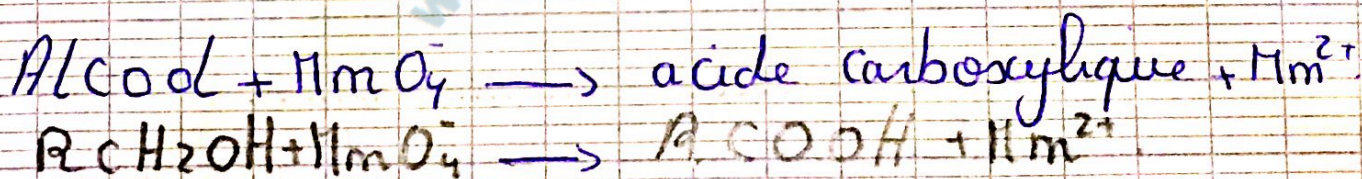 Alcool + MnO₄⁻ → acide carboxylique + Mn²⁺
RCH₂OH + MnO₄⁻ → RCOOH + Mn²⁺